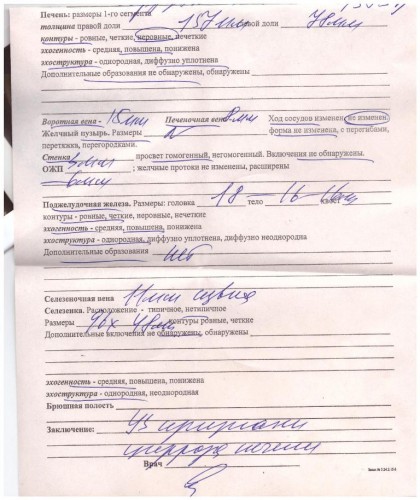 Печень: размеры 1-го сегмента
толщина правой доли 157мм вой доли 78мм
контуры - ровные, четкие, неровные, нечеткие
эхогенность - средняя, повышена, понижена
эхоструктура - однородная, диффузно уплотнена
Дополнительные образования не обнаружены, обнаружены
Воротная вена - мм Печеночная вена 8мм Ход сосудов изменен, не изменен
Желчный пузырь. Размеры N форма не изменена, с перегибами,
перетяжка, перегородками.
Стенка просвет гомогенный, негомогенный. Включения не обнаружены.
ОЖП ; желчные протоки не изменены, расширены
Поджелудочная железа. Размеры: головка 18 тело 16 хвост
контуры - ровные, четкие, неровные, нечеткие
эхогенность - средняя, повышена, понижена
эхоструктура - однородная, диффузно уплотнена, диффузно неоднородна
Дополнительные образования нет
Селезеночная вена 11мм
Селезенка. Расположение - типичное, нетипичное
Размеры 96х48мм контуры ровные, четкие
Дополнительные включения не обнаружены, обнаружены
эхогенность - средняя, повышена, понижена
эхоструктура - однородная, неоднородная
Брюшная полость
Заключение: УЗ признаки
цирроза печени
Врач